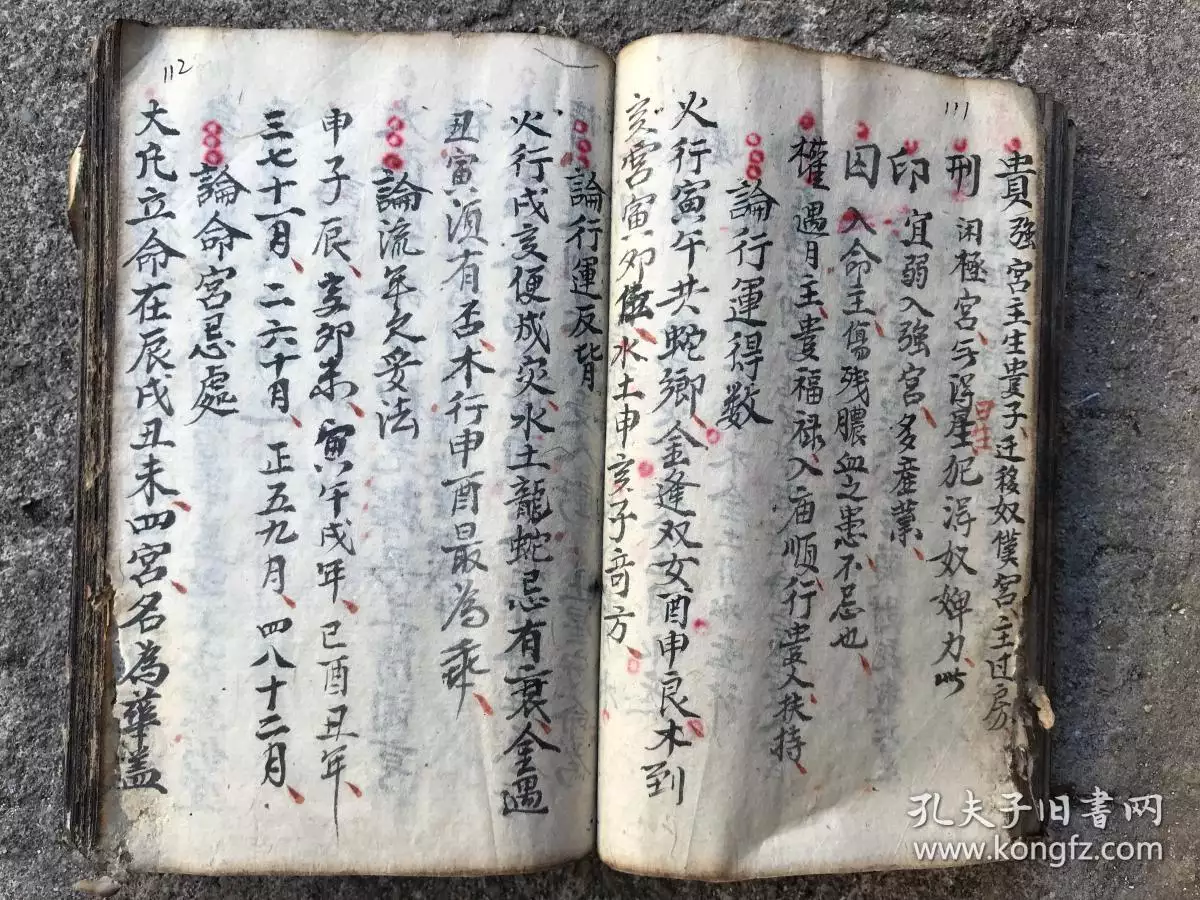 111
貴強宮主生貴子、迁移奴僕宮、主过房
刑 闲極宮、
星犯
奴婢力、此
印 宜弱入強宮、多産業、
囚 入命主、傷残膿血之患不忌也、
權 遇月主、貴福禄、入庙順、行貴人扶持、
論行運得數
火行寅午共蛇鄉、金逢双女酉申良木到
亥宮寅卯
、水土申亥子竒方、
112
論行運反背
火行戌亥便成灾、水土龍蛇忌有衰、金遇
丑寅須有否、木行申酉最為乖、
論流年之妥法
申子辰、亥卯未、寅午戌年、巳酉丑年、
三七十一月、二六十月、正五九月、四八十二月、
論命宮忌處
大凡立命在辰戌丑未、四宮、名為華盖
孔夫子旧書网
www.kongfz.com